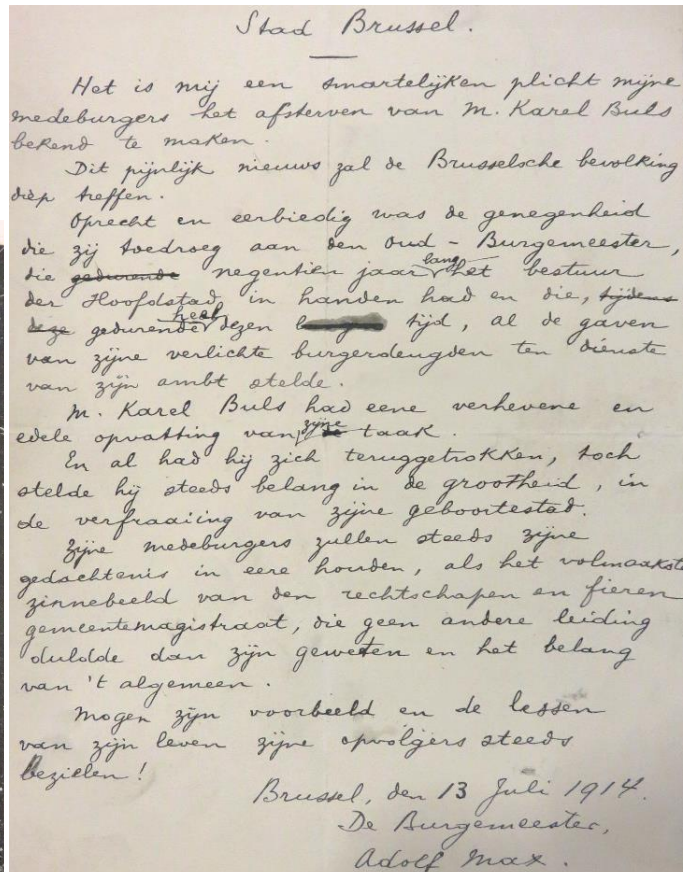 Stad Brussel.
Het is mij een smartelijken plicht mijne
medeburgers het afsterven van M. Karel Buls
bekend te maken.
Dit pijnlijk nieuws zal de Brusselsche bevolking
diep treffen.
Oprecht en eerbiedig was de genegenheid
die zij toedroeg aan den oud - Burgemeester,
die gedurende negentien jaar lang het bestuur
der Hoofdstad in handen had en die, tijdens
deze gedurende heel dezen tijd, al de gaven
van zijne verlichte burgerdeugden ten dienste
van zijn ambt stelde.
M. Karel Buls had eene verhevene en
edele opvatting van zijne taak.
En al had hij zich teruggetrokken, toch
stelde hij steeds belang in de grootheid, in
de verfraaiing van zijne geboortestad.
Zijne medeburgers zullen steeds zijne
gedachtenis in eere houden, als het volmaakste
zinnebeeld van den rechtschapen en fieren
gemeentemagistraat, die geen andere leiding
duldde dan zijn geweten en het belang
van 't algemeen.
Mogen zijn voorbeeld en de lessen
van zijn leven zijne opvolgers steeds
bezielen!
Brussel, den 13 Juli 1914.
De Burgemeester,
Adolf Max.